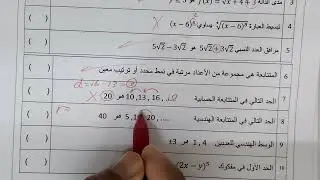 3 مدى الدالة f(x) = √x + 4 + 3
4 تبسيط العبارة: (x − 6)⁸ يساوي (x − 6)⁸ X
5 مرافق العدد النسبي 5√2 + 3√2 هو 5√2 − 3√2
6 المتتابعة هي مجموعة من الأعداد مرتبة في نمط محدد أو ترتيب معين
d = 16 - 13 = 3
7 الحد التالي في المتتابعة الحسابية 10 , 13 , 16 , هو 20 X
8 الحد التالي في المتتابعة الهندسية 5, 20, .... هو 40
9 الوسط الهندسي للعددين 1 , 4 هو ±3
10 الحد الأول في مفكوك